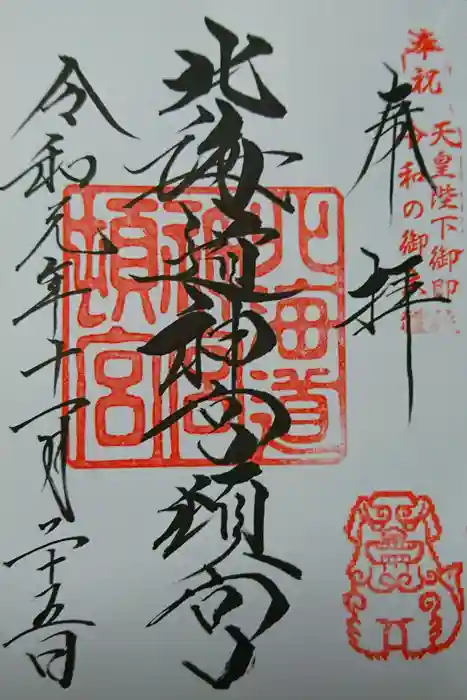 奉祝
天皇陛下御即位
令和の御
奉拝
北海道神宮頓宮
北海道
神宮
頓宮
令和元年十一月二十五日